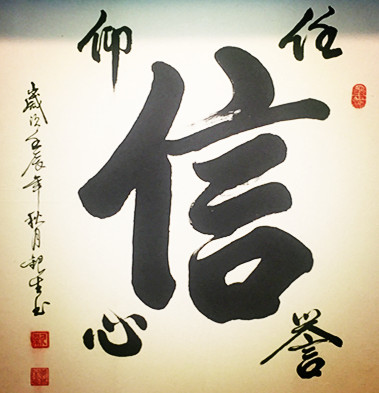 仰 任
信
心 誉
歲次壬辰年秋月